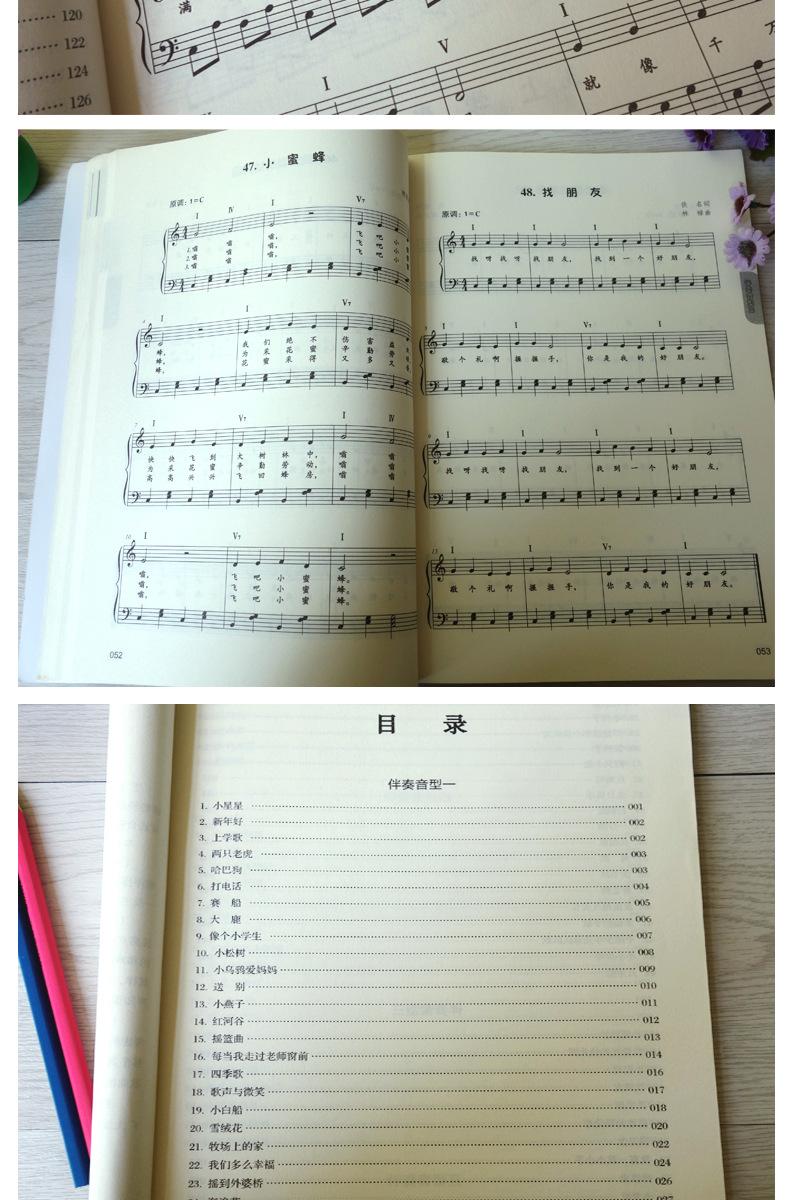 120
满
122
124
126
I
V
I
就 像 千
47. 小 蜜 蜂
原调：1=C
I IV I V7
1.嗡 嗡 嗡， 飞 吧 小
2.嗡 嗡 嗡， 飞 吧 小
3.嗡 嗡 嗡， 飞 吧 小
4
I V7
蜂， 我 们 绝 不 伤 害 益
蜂， 为 采 花 蜜 辛 勤 劳
蜂， 花 蜜 采 得 又 多 又
7
I V7 I IV
快 快 飞 到 大 树 林 中， 嗡 嗡
为 采 花 蜜 辛 勤 劳 动， 嗡 嗡
高 高 兴 兴 飞 回 蜂 房， 嗡 嗡
10
I V7 I
嗡， 飞 吧 小 蜜 蜂。
嗡， 飞 吧 小 蜜 蜂。
嗡， 飞 吧 小 蜜 蜂。
052
48. 找 朋 友
原调：1=C
佚 名词
曲
I I I I
找 呀 找 呀 找 朋 友， 找 到 一 个 好 朋 友，
5
I I V7 I
敬 个 礼 啊 握 握 手， 你 是 我 的 好 朋 友。
9
I I I I
找 呀 找 呀 找 朋 友， 找 到 一 个 好 朋 友，
13
I I V7 I
敬 个 礼 啊 握 握 手， 你 是 我 的 好 朋 友。
053
目 录
伴奏音型一
1. 小星星 001
2. 新年好 002
3. 上学歌 002
4. 两只老虎 003
5. 哈巴狗 003
6. 打电话 004
7. 赛 船 005
8. 大 鹿 006
9. 像个小学生 007
10. 小松树 008
11. 小乌鸦爱妈妈 009
12. 送 别 010
13. 小燕子 011
14. 红河谷 012
15. 摇篮曲 013
16. 每当我走过老师窗前 014
17. 四季歌 016
18. 歌声与微笑 017
19. 小白船 018
20. 雪绒花 020
21. 牧场上的家 022
22. 我们多么幸福 024
23. 摇到外婆桥 026